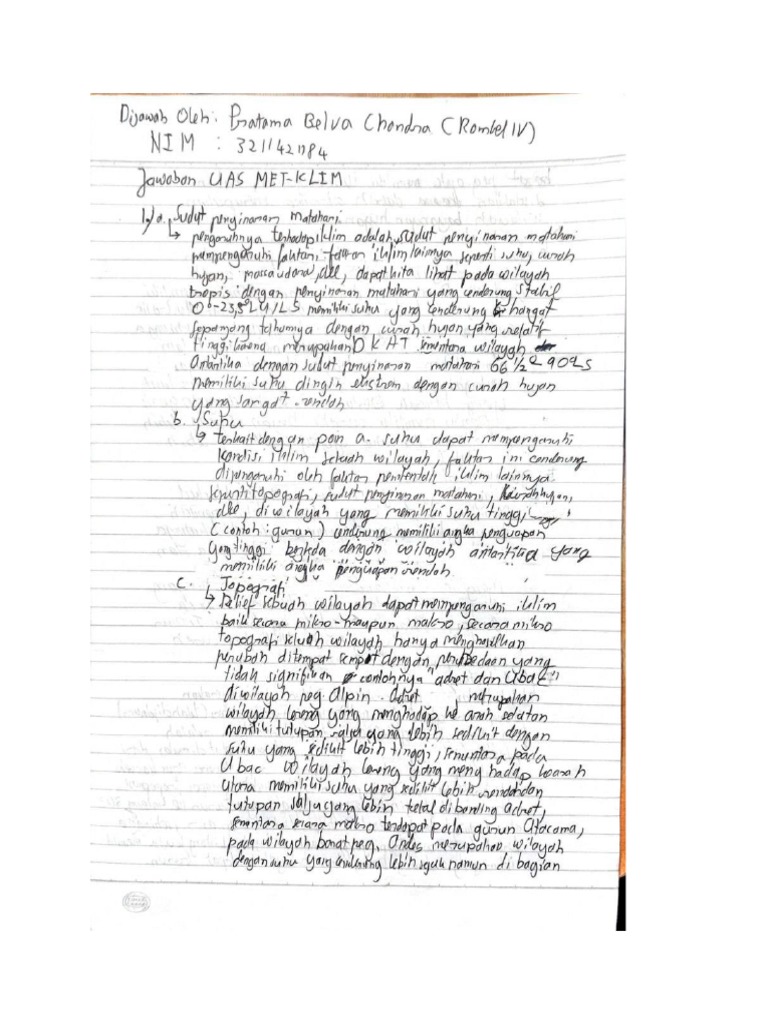 Dijawab Oleh: Pratama Belva Chandra (Rombel IV)
NIM :
Jawaban UAS MET-KLIM
1./a. Sudut penyinaran matahari
↳ pengaruhnya terhadap iklim adalah, sudut penyinaran matahari
mempengaruhi faktor-faktor iklim lainnya seperti suhu, curah
hujan, massa udara, dll, dapat kita lihat pada wilayah
tropis dengan penyinaran matahari yang cenderung stabil
0°-23,5° LU/LS memiliki suhu yang cenderung hangat
sepanjang tahunnya dengan curah hujan yang relatif
tinggi karena merupakan DKAT sementara wilayah
Antartika dengan sudut penyinaran matahari 66 ½ 90
memiliki suhu dingin ekstrem dengan curah hujan
yang sangat rendah
b. Suhu
↳ terkait dengan poin a. suhu dapat mempengaruhi
kondisi iklim sebuah wilayah, faktor ini cenderung
dipengaruhi oleh faktor pembentuk iklim lainnya
seperti topografi, sudut penyinaran matahari, curah hujan,
dll, di wilayah yang memiliki suhu tinggi
(contoh: gurun) cenderung memiliki angka penguapan
yang tinggi berbeda dengan wilayah antartika yang
memiliki angka penguapan rendah
c. Topografi
↳ Relief sebuah wilayah dapat mempengaruhi iklim
baik secara mikro maupun makro, secara mikro
topografi sebuah wilayah hanya menghasilkan
perubah ditempat dengan perbedaan yang
tidak signifikan contohnya "adret dan Ubac"
di wilayah peg. Alpin. Adret merupakan
wilayah lereng yang menghadap ke arah selatan
memiliki tutupan salju yang lebih sedikit dengan
suhu yang sedikit lebih tinggi, sementara pada
Ubac wilayah lereng yang menghadap kearah
utara memiliki suhu yang sedikit lebih rendah dan
tutupan salju yang lebih tebal dibanding adret,
sementara secara makro terdapat pada gurun Atacama,
pada wilayah barat peg. Andes merupakan wilayah
dengan suhu yang cenderung lebih sejuk namun di bagian